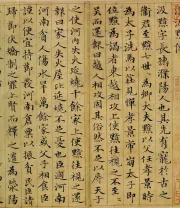 汲黯字長孺濮陽人也其先有寵於古之
衛君至黯七世世為卿大夫黯以父任孝景時
為太子洗馬以莊見憚孝景帝崩太子即
位黯為謁者東越相攻上使黯往視之不至吳
而還報曰越人相攻固其俗然不足以辱天子
之使河內失火延燒千餘家上使黯往視之還
報曰家人失火屋比延燒不足憂也臣過河南
河南貧人傷水旱萬餘家或父子相食臣
謹以便宜持節發河南倉粟以振貧民臣請
歸節伏矯制之罪上賢而釋之遷為滎陽